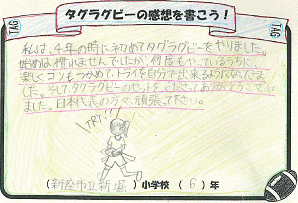 タグラグビーの感想を書こう！
TAG
TAG
私は、4年の時に初めてタグラグビーをやりました。
始めは慣れませんでしたが、何度もやっているうちに、
楽しくコツもつかめて、トライを自分で出来るようになってき
ました。そしてタグラグビーのセットを、くださってありがとうござい
ました。日本代表の方々、頑張って下さい。
TRY!!
（新座市立新堀）小学校（6）年